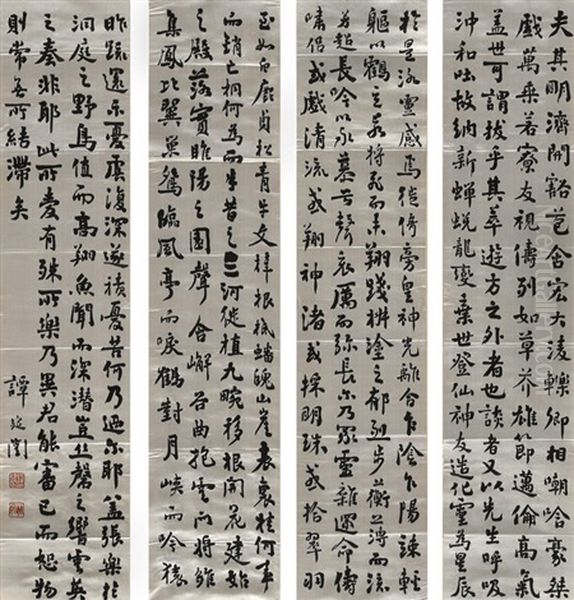 夫其明濟開豁苞含宏大凌轢卿相嘲哈豪桀
戲萬乘若寮友視儔列如草芥雄節邁倫高氣
盖世可謂拔乎其萃遊方之外者也談者又以先生呼吸
沖和吐故納新蟬蛻龍變棄世登仙神友造化靈為星辰
於是洛靈感焉徙倚旁皇神光離合乍陰乍陽竦輕
軀以鶴立若將飛而未翔踐椒塗之郁烈步蘅薄而流
芳超長吟以永慕兮聲哀厲而彌長尔乃眾靈雜遝命儔
嘯侶或戲清流或翔神渚或採明珠或拾翠羽
至如白鹿貞松青牛文梓根柢蟠魄山崖表裏桂何事
而銷亡桐何為而半昔之三河徙植九畹移根開花建始
之殿落實睢陽之園聲含嶰谷曲抱雲門將雛
集鳳比翼巢鴛臨風亭而唳鶴對月峽而吟猿
昨疏還示憂虞復深遂積憂苦何乃過尔耶蓋張樂於
洞庭之野鳥值而高翔魚聞而深潛豈絲磬之響雲英
之奏非耶此所愛有殊所樂乃異君能審己而恕物
則常無所結滯矣
譚延闓